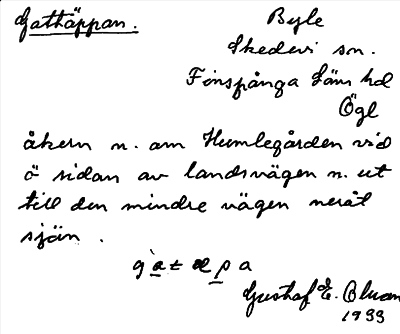 Gattäppan.
Byle
Skedevi sn.
Finspånga läns hd
Ögl
åkern n. om Humlegården vid
ö sidan av landsvägen n. ut
till den mindre vägen neråt
sjön.
gàtæpa
Gustaf E.
1933